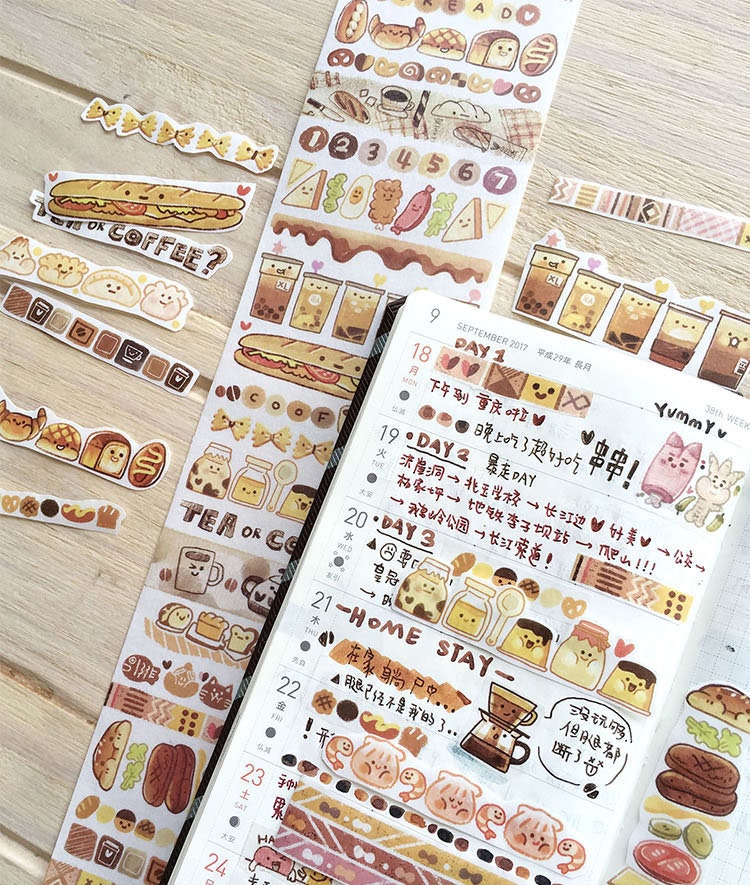 BREAD
1 2 3 4 5 6 7
XL
TEA OR COFFEE?
XL
COOF
TEA OR CO
9
SEPTEMBER 2017 平成29年 長月
38th WEEK
18
月
MON
仏滅
DAY 1
下午到重庆啦
晚上吃了超好吃串串!
YUMMY
19
火
TUE
大安
·DAY 2
暴走DAY
洪崖洞→北互学校→长江边 好美→公交→
杨家坪→地铁李子坝站→爬山!!!
→鹅岭公园→长江索道!
20
水
WED
友引
·DAY 3
皇冠
21
木
THU
先負
-HOME STAY-
在家躺尸中...
腿已经不是我的了..
22
金
FRI
仏滅
没玩够,
但腿都
断了
23
土
SAT
大安
果
24
HA